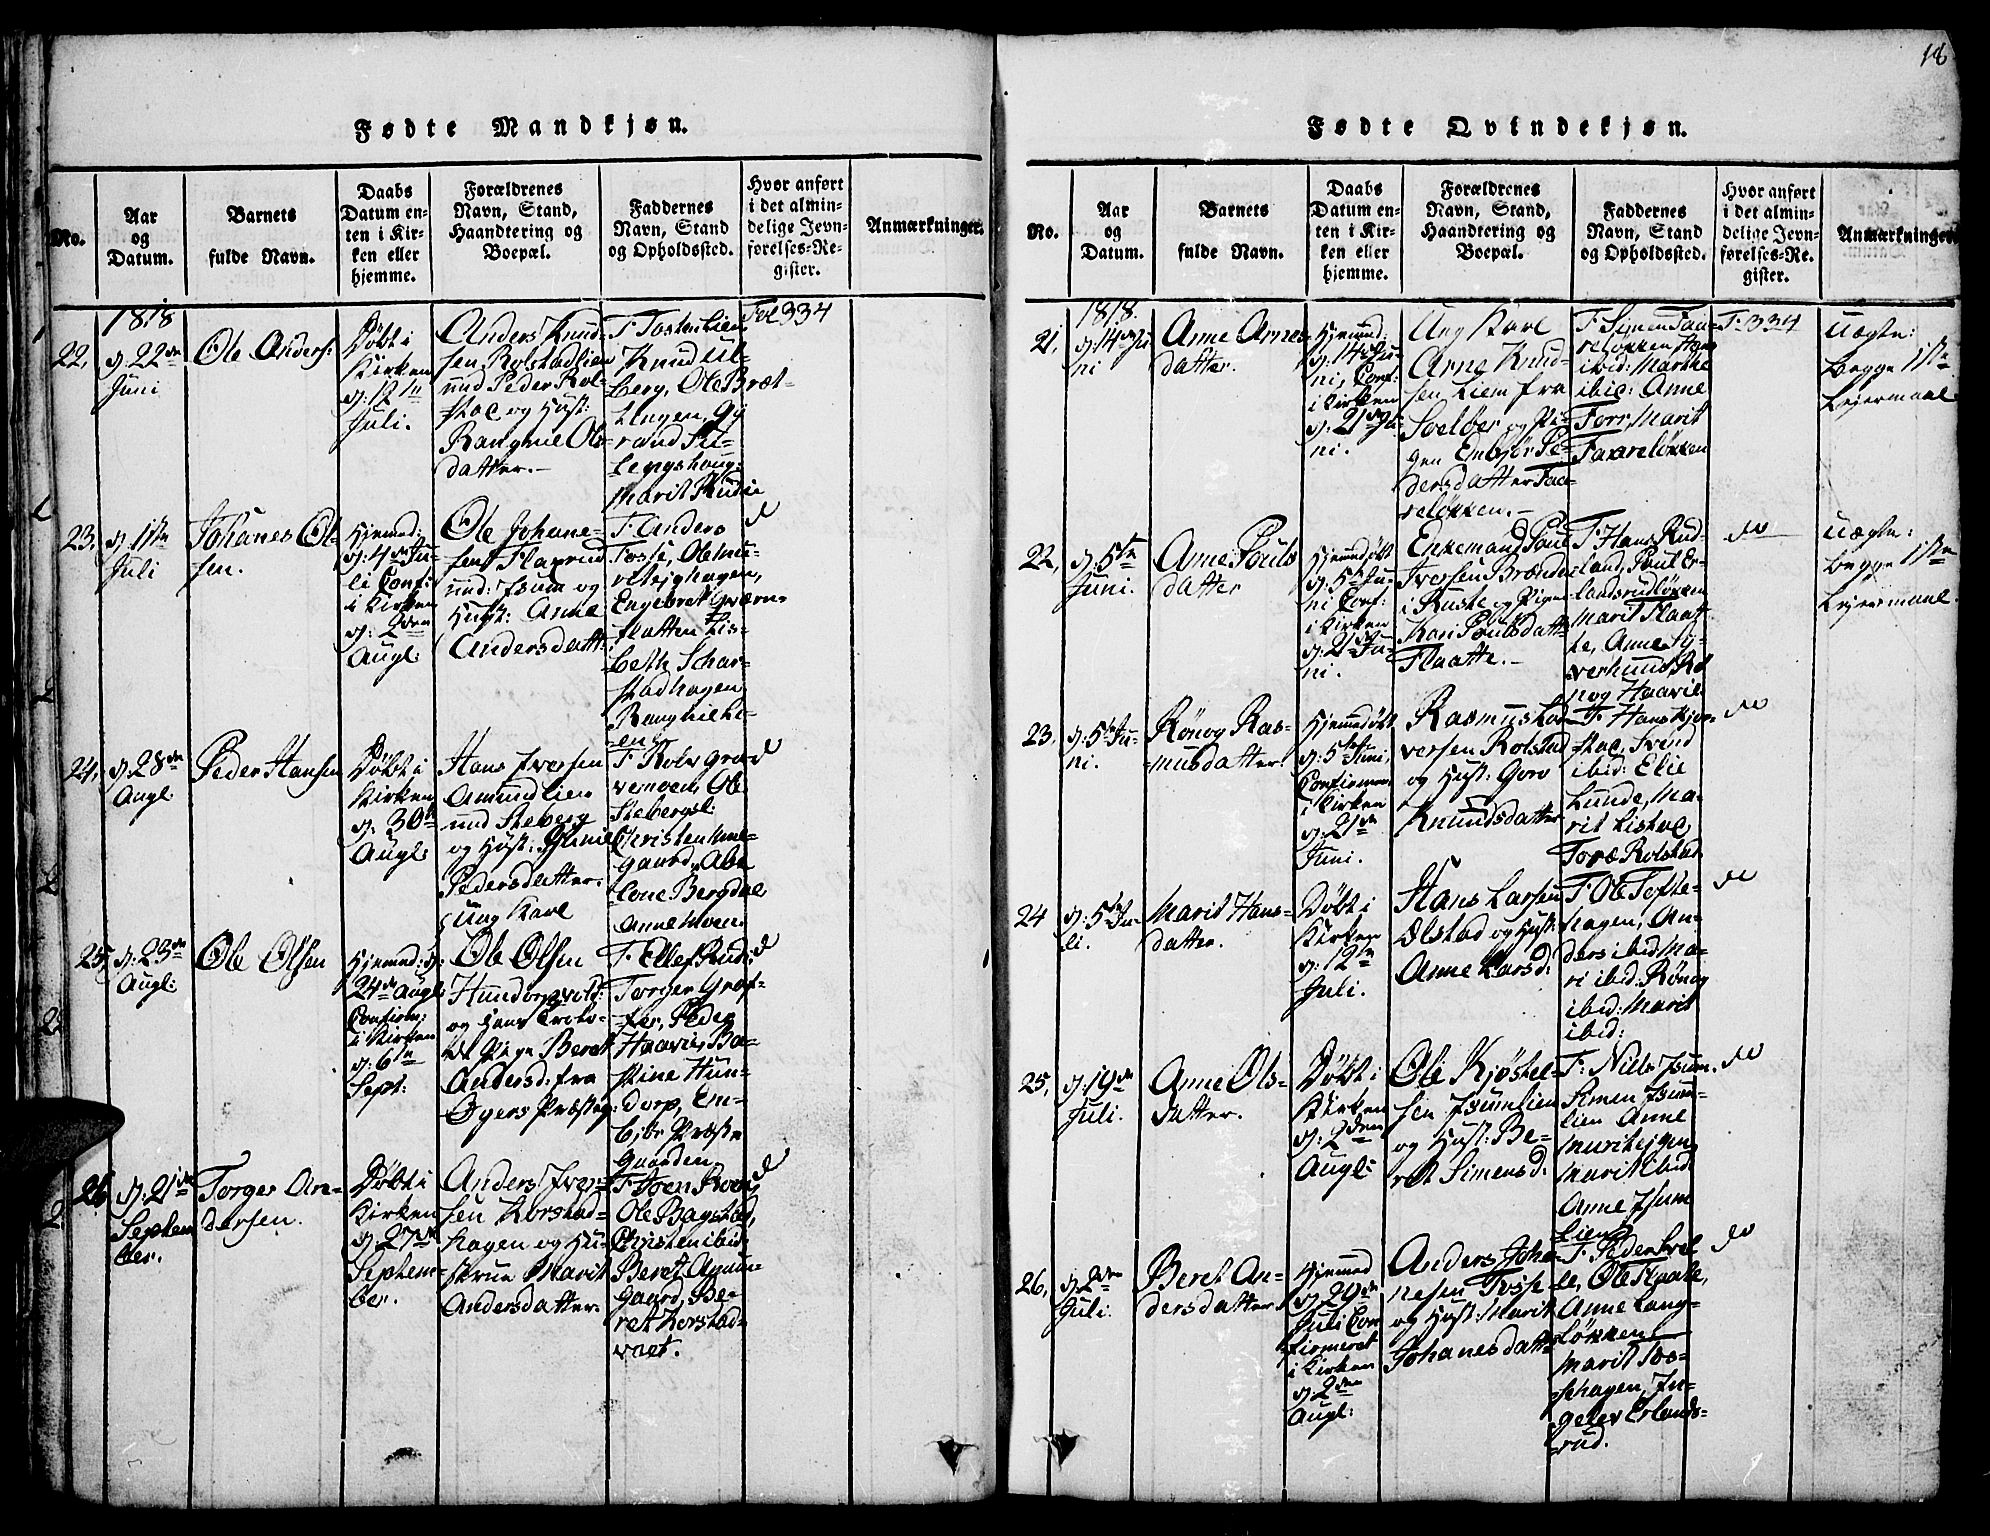 18
Fødte Mandkjøn.
No.
Aar
og
Datum.
Barnets
fulde Navn.
Daabs
Datum en-
ten i Kir-
ken eller
hjemme.
Forældrenes
Navn, Stand,
Haandtering og
Boepæl.
Faddernes
Navn, Stand
og Opholdssted.
Hvor anført
i det almin-
delige Jevn-
førelses-Re-
gister.
Anmærkninger.
1818
22,
d: 22de
Juni
Ole Anders:
Døbt i
Kirken
d: 12te
Juli.
Anders Knud-
sen Rolstadlien
und Peder Rol-
stad og Hust:
Rangnil Ols-
datter.
F. Tosten Lien
Knud Ul-
berg, Ole Bræt-
Engen,
rand
Marit Rudi
Fol 334
23,
d: 1ste
Juli
Johanes Ol-
sen.
Hjemmed:
d: 4de Ju-
li Conf:
i Kirken
d: 2den
Augl:
Ole Johane-
sen Flaprud
und: Isum og
Hust: Anne
Andersdatt:
F. Anders
Tosse, Ole
Engebret Qværn-
flatten Lis-
beth Schar-
stadhagen
Rangnil
do
24,
d: 28de
Augl:
Peder Hansen
Døbt i
Kirken
d: 30te
Augl:
Hans Iversen
Amundlien
und Steberg
og Hust:
Pedersdatter.
F. Kolv Græ-
vemoen, Ole
Stebergsl:
Christen
gaard,
Lone Bergdal
Anne Moen
do
25,
d: 23de
Augl:
Ole Olsen
Hjemmed: d:
24de Augl:
Confirm:
i Kirken
d: 6te
Sept:
Ung Karl
Ole Olsen
Hundorpvold:
og hans Trolo-
vede Pige Beret
Andersd: fra
Øyers Præsteg:
F. Ellef Rud:
Torger Græf-
fer, Peder
Haavie, Ba-
stine Hun-
dorp, Em-
bjør Præste
gaarden
do
26
d: 21de
Septem
ber.
Torger An-
dersen.
Døbt i
Kirken
d: 27de
Septem-
ber.
Anders Iver-
sen Korstad-
hagen og Hu-
strue Marit
Andersdatter.
F. Iver Roen,
Ole Bagstad,
Christen ibid:
Beret Amun-
gaard, Be-
ret Korstad-
vœt.
do
Fødte Qvindekjøn.
No.
Aar
og
Datum.
Barnets
fulde Navn.
Daabs
Datum en-
ten i Kir-
ken eller
hjemme.
Forældrenes
Navn, Stand,
Haandtering og
Boepæl.
Faddernes
Navn, Stand
og Opholdssted.
Hvor anført
i det almin-
delige Jevn-
førelses-Re-
gister.
Anmærkninger.
1818.
21,
d: 14de Ju-
ni
Anne Arnes-
datter.
Hjemmed:
d: 14de Ju-
ni, Conf:
i Kirken
d: 21de Ju-
ni.
Ung Karl
Arne Knud-
sen Liem fra
Soelber og Pi-
gen Embjør Pe-
dersdatter Faa-
reløkken.
F. Simen Faa-
reløkken Hans
ibid: Marthe
ibid: Anne
Forr, Marit
Faareløkken
F. 334
Uægte:
begge 1ste
Leiermaal
22,
d: 5te
Juni.
Anne Pouls
datter
Hjemmedøbt
d: 5te Ju-
ni Conf:
i Kirken
d: 21de Ju-
ni.
Enkemand Poul
Iversen Brænde
i Ruste og Pigen
Kari Poulsdatt:
Flaatte.
F. Hans Rud-
land, Poul Er-
landsrudløkken
Marit Flaat-
te, Anne Sy-
verhuus Rø
nog Haavie
do
Uægte:
begge 1ste
Leiermaal.
23,
d: 5te Ju-
ni.
Rønog Ras-
musdatter
Hjemmedøbt
d: 5te Juni,
Confirmert
i Kirken
d: 21de
Juni.
Rasmus Lar-
versen Rolstad
og Hust: Goro
Knudsdatter
F. Hans Kjør-
stad, Svend
ibid: Elie
Lunde, Ma-
rit Listad,
Toræ Rolstad
do
24
d: 5te Ju-
li.
Marit Hans-
datter.
Døbt i
Kirken
d: 12te
Juli.
Hans Larsen
Ølstad og Hust:
Anne Larsd:
F. Ole Tofte-
hagen, An-
ders ibid Ma-
ri ibid: Rønog
ibid: Marit
ibid:
do
25,
d: 19de
Juli.
Anne Ols-
datter.
Døbt i
Kirken
d: 2den
Augl:
Ole Kjøstel-
sen Isumlien
og Hust: Be-
ret Simensd:
F: Niels Isum
Simen Isum-
lien Anne
Marit ibid
Anne Isum
Lien
do
26,
d: 2den
Juli.
Beret An-
dersdatter
Hjemmed
d: 29de
Juli Con
firmeret
i Kirken
d: 2den
Augl:
Anders Joha-
nesen Tosse
og Hust: Marit
Johanesdatt:
F. Peder Kvel
le, Ole Flaate,
Anne Lang-
løkken
Marit Tos-
sehagen, In-
gelev Erlands-
rud.
do